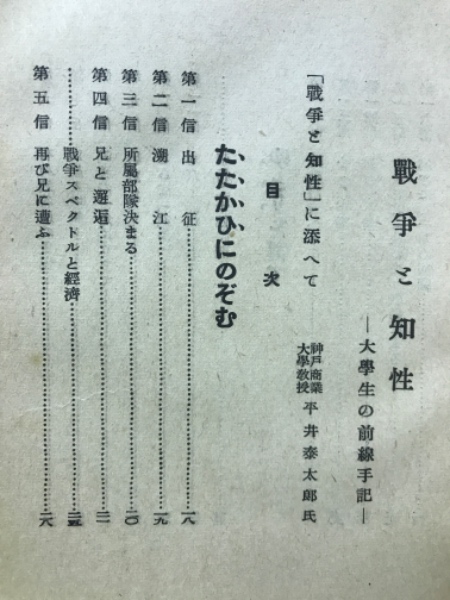 戰爭と知性
―大學生の前線手記―
「戰爭と知性」に添へて
神戸商業大學教授 平井泰太郎氏
目次
たたかひにのぞむ
第一信 出征……一八
第二信 溯江……一九
第三信 所屬部隊決まる……二〇
第四信 兄と邂逅……二一
……戰爭スペクトルと經濟……二五
第五信 再び兄に遭ふ……二八